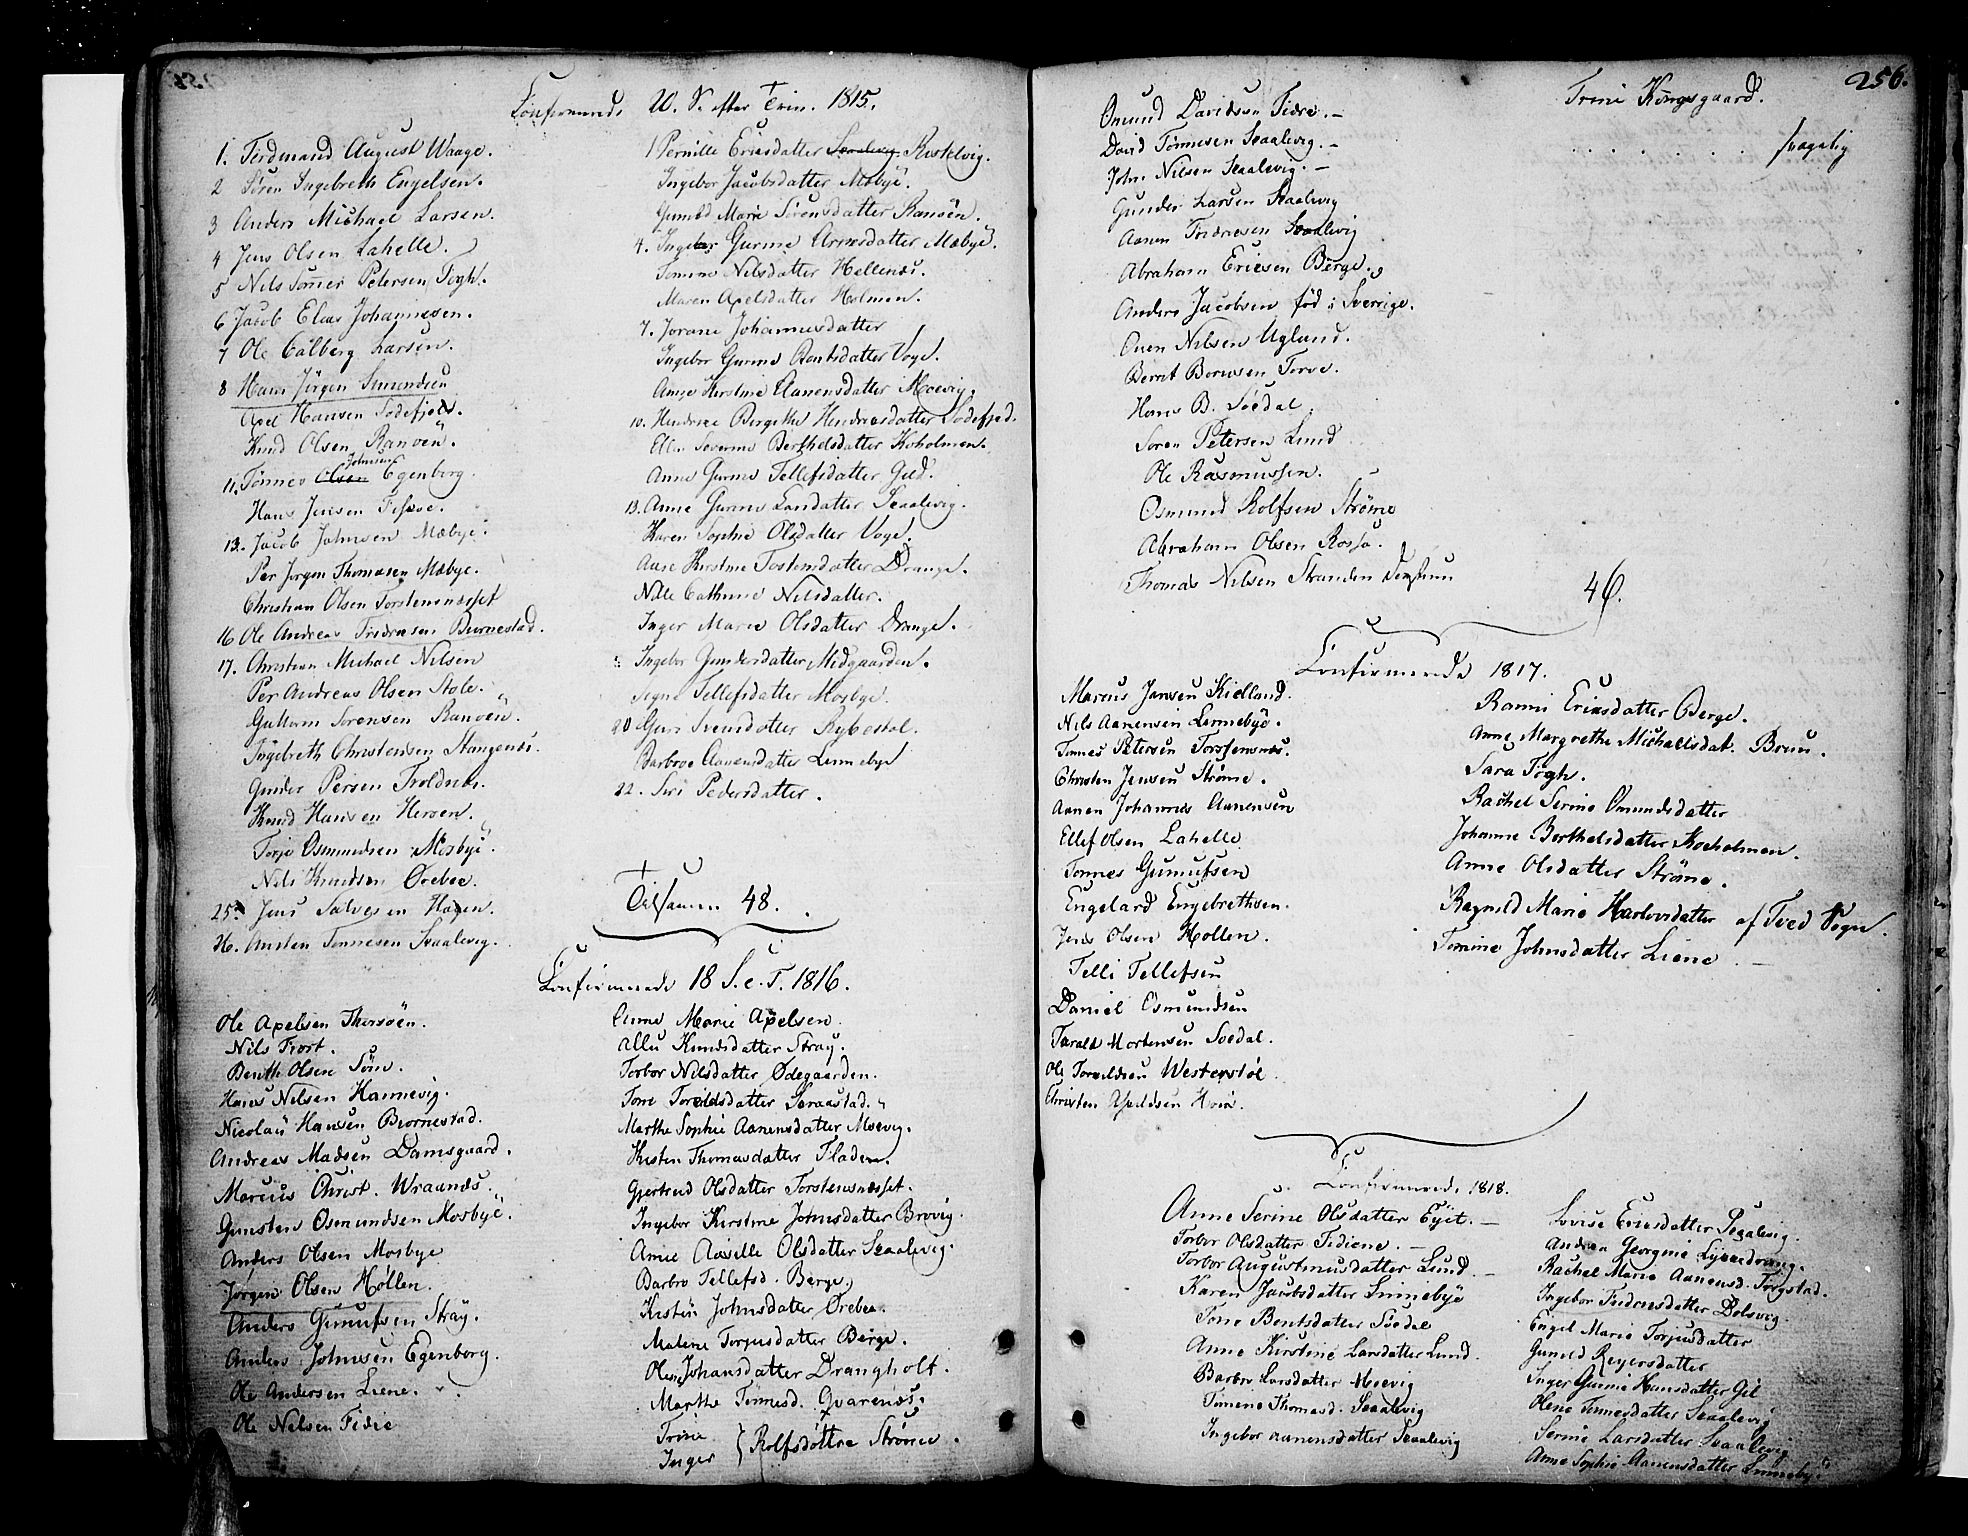 Confirmerede 20. S. efter Trin. 1815.
1. Ferdinand August Waage.
2 Sören Ingebreth Engelsen.
3 Anders Michael Larsen.
4 Jens Olsen Lahelle.
5 Nils Sömer Petersen Fogh.
6 Jacob Elias Johannesen.
7 Ole Calberg Larsen.
8 Hans Jörgen Simundsen
Axel Hansen Lodefjed.
Knud Olsen Ranöen.
11. Tönnes Olsen Johnsen Egenberg.
Hans Jensen
13. Jacob Johnsen Mæbye.
Per Jørgen Thomasen Mæbye.
Christian Olsen Torstensnæsset
16 Ole Andreas Fredresen Biørnestad.
17. Christian Michael Nilsen
Per Andreas Olsen Stole.
Guttorm Sörensen Ranöen.
Ingebreth Christensen Stangenes.
Gunder Persen Troldnes.
Knud Hansen Heröen.
Torje Osmundsen Mosbye.
Nils Knudsen Örebec.
25. Jens Salvesen Hagen.
26. Austen Tönnesen Skaalevig.
1 Pernille Ericsdatter Skaalevig Kistelvig.
Ingebor Jacobsdatter Mæbye.
Gunild Marie Sörensdatter Ranöen.
4. Ingebor Gurine Arnesdatter Mæbye.
Tomine Nilsdatter Hellenes.
Maren Axelsdatter Holmen.
7. Jorane Johannesdatter
Ingebor Gurine Bentsdatter Voge.
Anne Kirstine Aanensdatter Moevig.
10. Hendrine Birgitte Hendricsdatter Lodefjed.
Ellen Severine Berthelsdatter Koholmen.
Anne Gurine Tellefsdatter Gild.
13. Anne Gurine Larsdatter Skaalevig.
Karen Sophie Olsdatter Voge.
Aase Kirstine Tostensdatter Drange.
Nille Cathrine Nilsdatter.
Inger Marie Olsdatter Drange.
Ingebor Gundersdatter Midgaarden.
Signe Tellefsdatter Mosbye.
20 Guri Svensdatter Rybestol.
Barbroe Aanensdatter Linnebye
22. Siri Pedersdatter.
Tilsamm. 48.
Confirmerede 18 S. e. T. 1816.
Ole Axelsen Thersöen.
Nils Frost.
Benth Olsen Söm.
Hans Nilsen Hannevig.
Nicolay Hansen Biørnestad.
Andreas Madsen Damsgaard.
Marcus Christ. Wraanæs.
Gunsten Osmundsen Mosbye.
Anders Olsen Mosbye
Jørgen Olsen Høllen.
Anders Gunufsen Stray.
Anders Johnsen Egenborg.
Ole Andersen Liene.
Ole Nilsen Fidie
Anne Marie Axelsen.
Allu Knudsdatter Stray.
Torbor Nilsdatter Ødegaarden.
Tone Toreldsdatter Seraastad.
Marthe Sophie Aanensdatter Moevig.
Kisten Thomasdatter Fladen.
Gjertrud Olsdatter Torstensnæsset.
Ingebor Kirstine Johnsdatter Brövig.
Anne Axselle Olsdatter Skaalevig.
Barbro Tellefsd. Berge.
Kisten Johnsdatter Örebec.
Malene Torjusdatter Berge.
Olene Johansdatter Drangholt.
Marthe Tönnesd. Qvarenæs.
Trine
Inger } Rolfsdöttre Ströme.
256.
Omund Davidsen Fidie.
David Tönnesen Skaalevig.
John Nilsen Skaalevig.
Gunder Larsen Skaalevig
Aanen Fredricsen Skaalevig
Abraham Ericsen Berge.
Anders Jacobsen fød i Sverrige.
Ouen Nilsen Ugland.
Bernt Berusen Torve.
Hans B. Söedal
Sören Petersen Lund
Ole Rasmussen.
Osmund Rolfsen Ströme
Abraham Olsen Rossø.
Thomas Nilsen Stranden
46.
Trine Kongsgaard.
svagelig
Confirmerede 1817.
Marcus Jansen Kielland.
Nils Aanensen Linnebye.
Tönnes Petersen Torstensnæs.
Christen Jensen Ströme.
Aanen Johannes Aanensen
Ellef Olsen Lahelle
Tönnes Gunufsen
Engelard Engebrethsen.
Jens Olsen Höllen.
Telli Tellefsen
Daniel Osmundsen
Tarald Mortensen Soedal.
Ole Tarildsen Westerstöl
Christen Axeldsen
Ranni Ericsdatter Berge.
Anne Margrethe Michaelsdat. Bruu.
Sara Fogh.
Rachel Serine Omundsdatter
Johanne Berthelsdatter Koeholmen.
Anne Olsdatter Ströme.
Ragnild Marie Harlovsdatter af Tved Sogn.
Tomine Johnsdatter Liene
Confirmerede 1818.
Anne Serine Olsdatter Eyet.
Torbor Olsdatter Fidiene.
Torbor Augustinusdatter Lund.
Karen Jacobsdatter Linnebye
Tone Bentsdatter Söedal
Anne Kirstine Larsdatter Lund.
Barbro Larsdatter Moevig
Tomine Thomasd. Skaalevig
Ingebor Aanensdatter Skaalevig
Lovise Ericsdatter Skaalevig.
Andrea Georgine Lyckedrang.
Rachel Marie Aanensd. Torgstad.
Ingebor Fredricsdatter Dolsvig.
Engel Marie Torjusdatter
Gunild Reyersdatter
Inger Gurine Hansdatter Gil
Olene Tönnesdatter Skaalevig
Serine Larsdatter Skaalevig
Anne Sophie Aanensdatter Linnebye